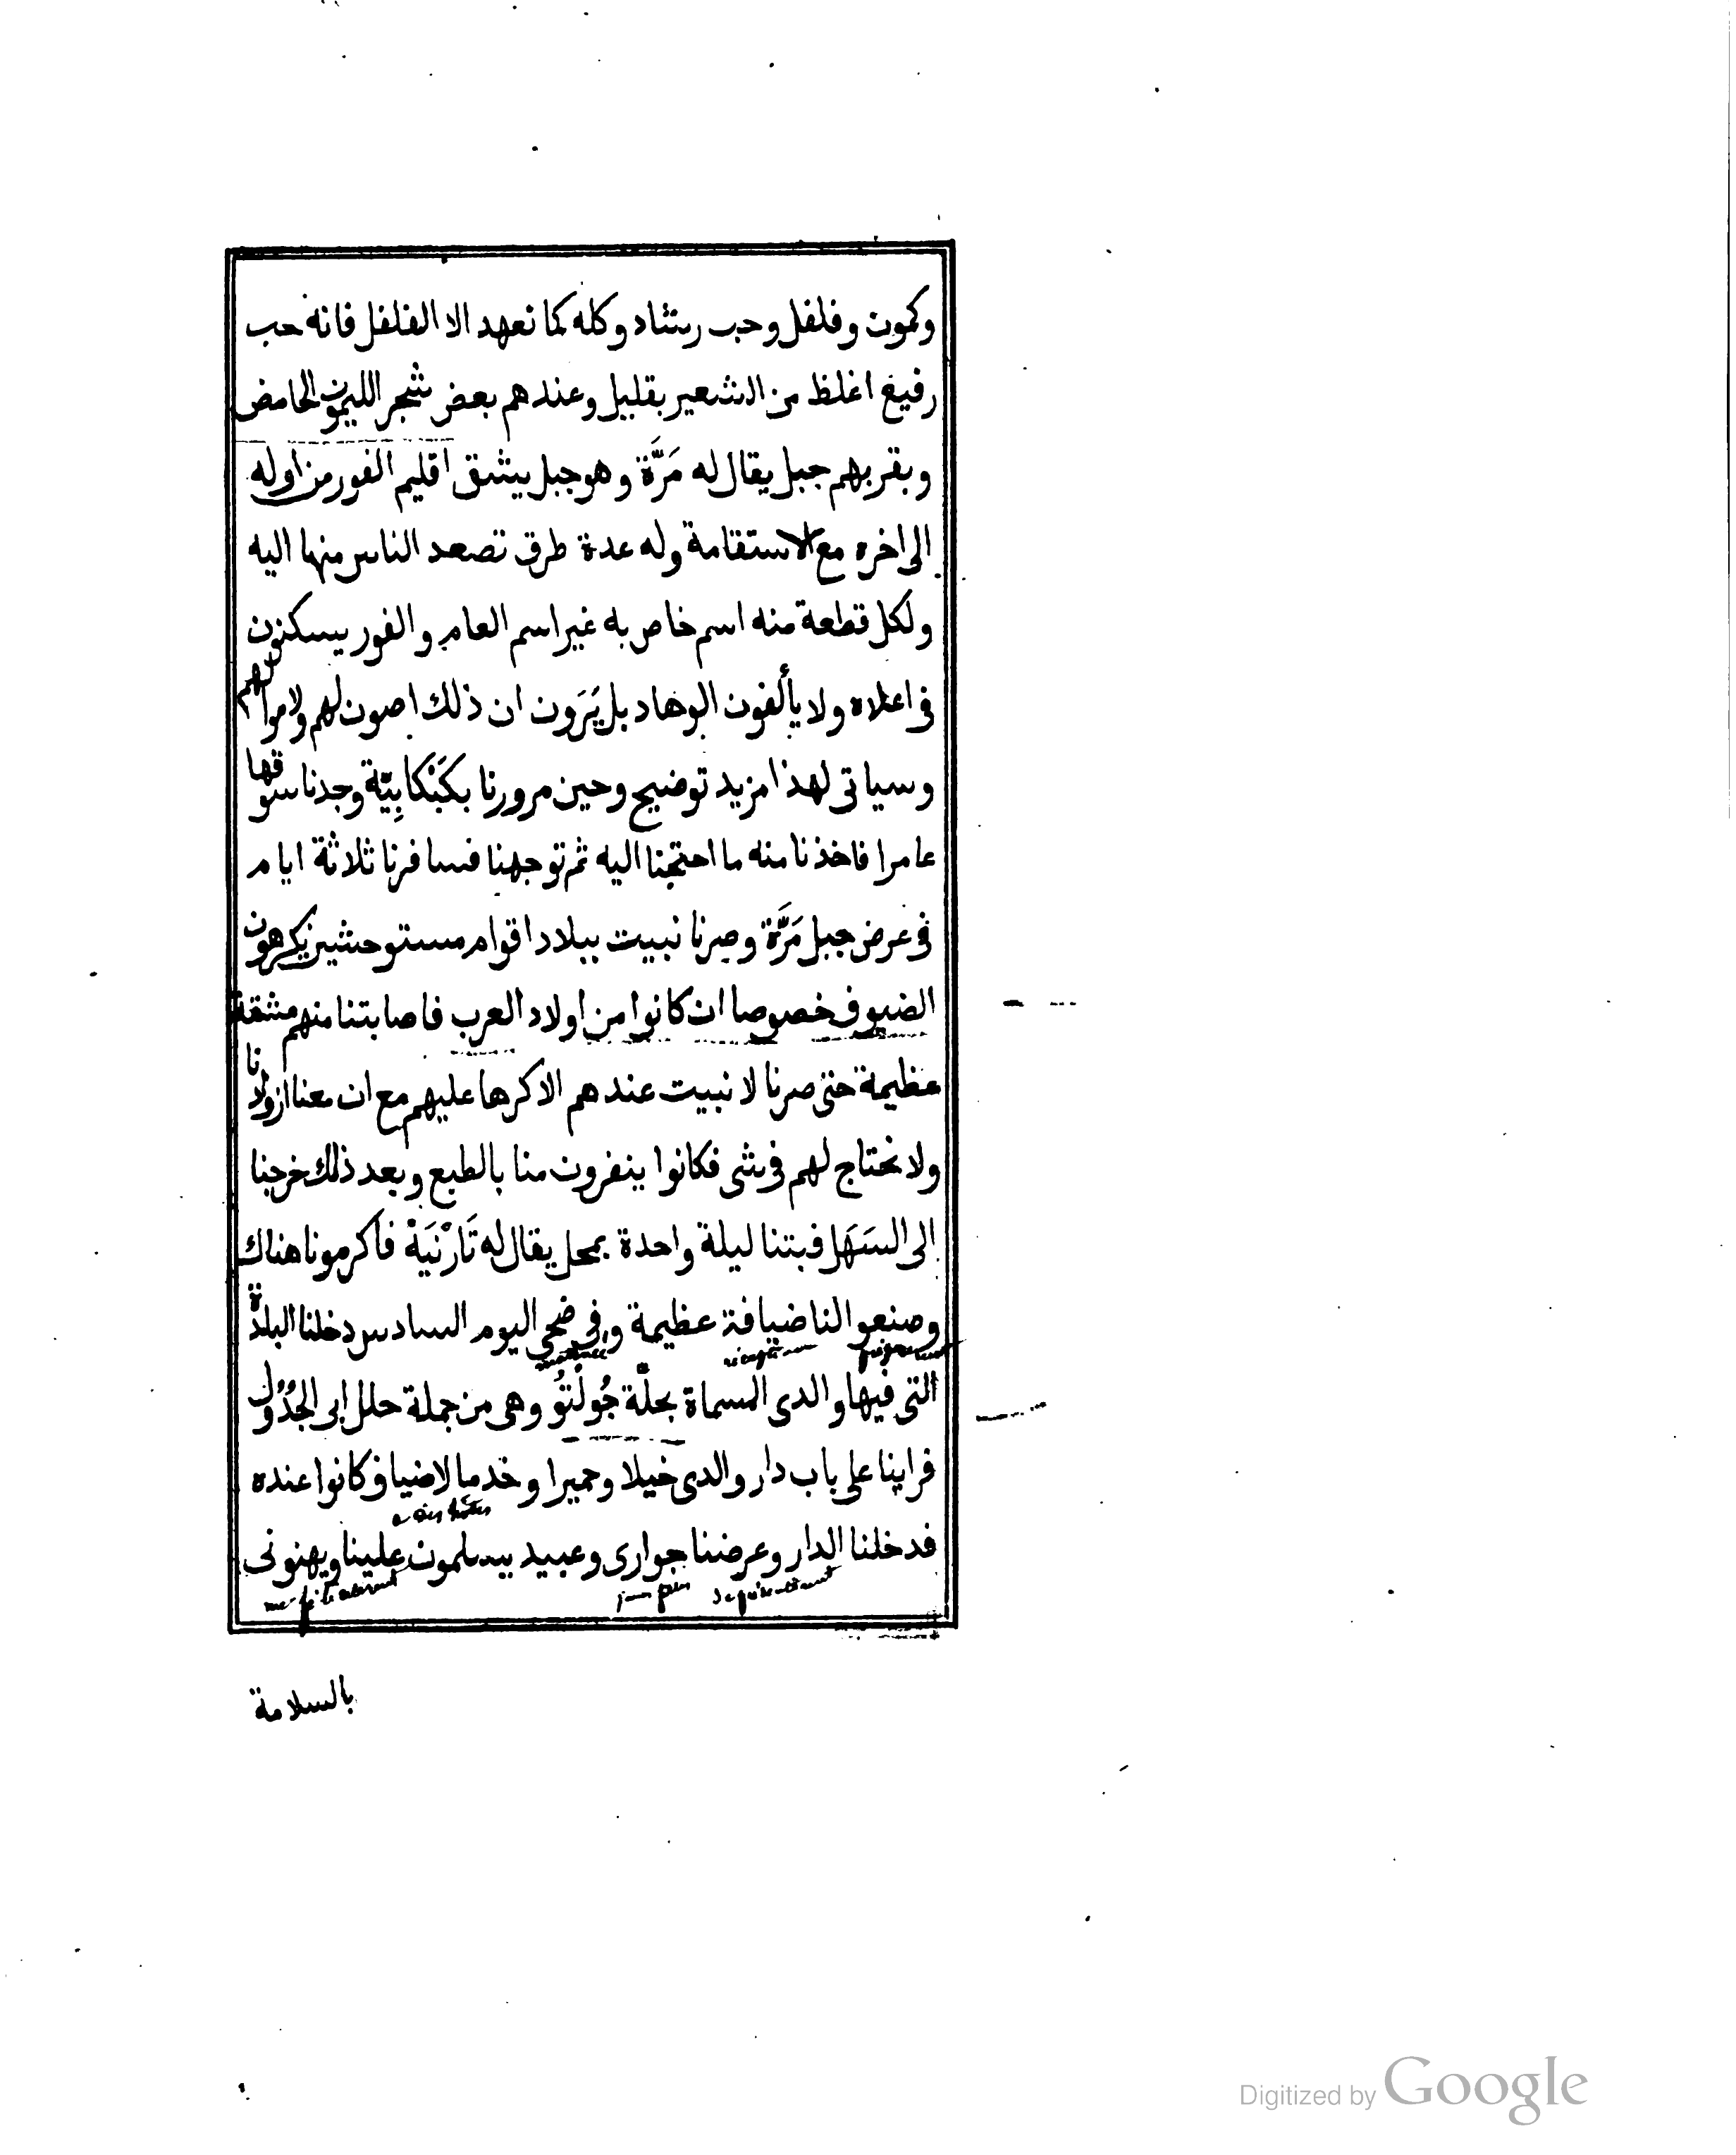 وكمون وفلفل وحب رشاد وكله كما نعهد الا الفلفل فانه حب
رفيع اغلظ من الشعير بقليل وعندهم بعض شجر الليمون الحامض
وبقربهم جبل يقال له مَرَّة وهو جبل يشق اقليم الفور من اوله
الى اخره مع الاستقامة وله عدة طرق تصعد الناس منها اليه
ولكل قطعة منه اسم خاص به غير اسم العام والفور يسكنون
فى اعلاه ولا يألفون الوهاد بل يَرَون ان ذلك اصون لهم ولاموالهم
وسياتى لهذا مزيد توضيح وحين مرورنا بكَبْكابِيّة وجدنا سوقها
عامرا فاخذنا منه ما احتجنا اليه ثم توجهنا فسافرنا ثلاثة ايام
فى عرض جبل مَرَّة وصرنا نبيت ببلاد اقوام مستوحشين يكرهون
الضيوف خصوصا ان كانوا من اولاد العرب فاصابتنا منهم مشقة
عظيمة حتى صرنا لا نبيت عندهم الا كرها عليهم مع ان معنا ازوادنا
ولا نحتاج لهم فى شى فكانوا ينفرون منا بالطبع وبعد ذلك خرجنا
الى السَهَل فبتنا ليلة واحدة بمحل يقال له تَارْنَيَهْ فاكرمونا هناك
وصنعوا لنا ضيافة عظيمة وفى ضحى اليوم السادس دخلنا البلدة
التى فيها والدى المسماة بحلّة جُولْتُو وهى من جملة حلل ابى الجُدُول
فراينا على باب دار والدى خيلا وحميرا وخدما لاضياف كانوا عنده
فدخلنا الدار وعرضننا جوارى وعبيد يسلمون علينا ويهنونى
بالسلامة
Digitized by Google